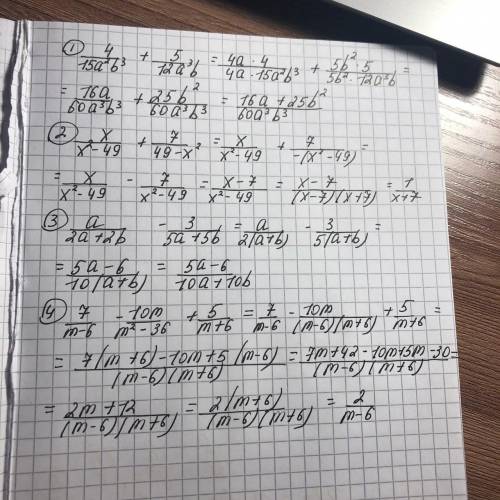 ① 4/(15a²b³) + 5/(12a³b) = (4a · 4)/(4a · 15a²b³) + (5b² · 5)/(5b² · 12a³b) =
= 16a/(60a³b³) + 25b²/(60a³b³) = (16a + 25b²)/(60a³b³)
② x/(x² - 49) + 7/(49 - x²) = x/(x² - 49) + 7/(-(x² - 49)) =
= x/(x² - 49) - 7/(x² - 49) = (x - 7)/(x² - 49) = (x - 7)/((x - 7)(x + 7)) = 1/(x + 7)
③ a/(2a + 2b) - 3/(5a + 5b) = a/(2(a + b)) - 3/(5(a + b)) =
= (5a - 6)/(10(a + b)) = (5a - 6)/(10a + 10b)
④ 7/(m - 6) - 10m/(m² - 36) + 5/(m + 6) = 7/(m - 6) - 10m/((m - 6)(m + 6)) + 5/(m + 6) =
= (7(m + 6) - 10m + 5(m - 6))/((m - 6)(m + 6)) = (7m + 42 - 10m + 5m - 30)/((m - 6)(m + 6)) =
= (2m + 12)/((m - 6)(m + 6)) = 2(m + 6)/((m - 6)(m + 6)) = 2/(m - 6)